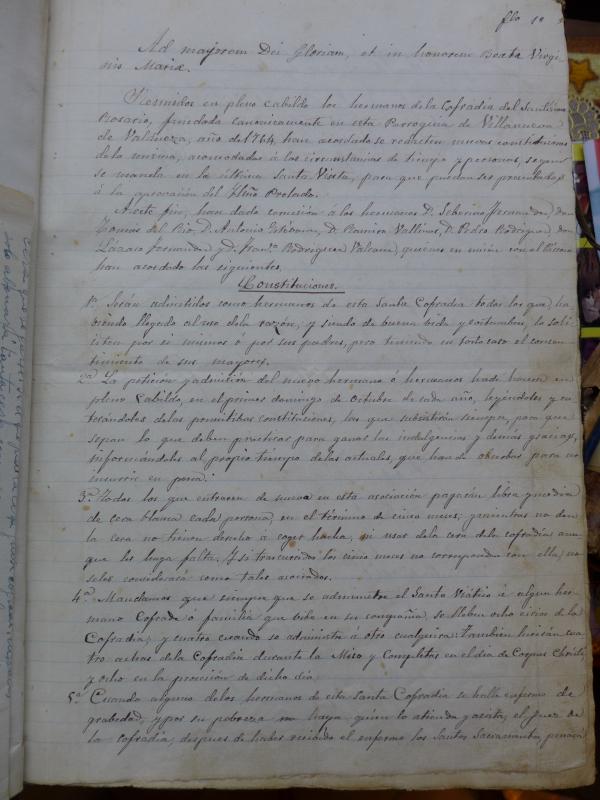 flo 1º
Ad majorem Dei Gloriam, et in honorem Beatæ Virgi-
nis Mariæ.
Reunidos en pleno Cabildo los hermanos de la Cofradia del Santísimo
Rosario, fundada canonicamente en esta Parroquia de Villanueva
de Valdueza, año de 1764, han acordado se redacten nuevas constituciones
de la misma, acomodadas á las circunstancias de tiempo y personas, segun
se manda en la última Santa Visita, para que puedan ser presentadas
á la aprovacion del Prelado.
A este fin, han dado comision á los hermanos D. Seberino Fernandez, don
Tomas del Rio, D. Antonio D. Ramiro Vallinas, D. Pedro Rodriguez, don
Lázaro Fernandez y D. Franco Rodriguez Valcarce, quienes en union con el Párroco
han acordado las siguientes
Constituciones.
1ª Serán admitidos como hermanos de esta Santa Cofradia todos los que, ha
biendo llegado al uso de la razón, y siendo de buena vida y costumbres, lo soli
citen por si mismos ó por sus padres, pero teniendo en todo caso el consen
timiento de sus mayores.
2ª La peticion y admision del nuevo hermano ó hermanos hade hacerse en
pleno Cabildo, en el primer domingo de Octubre de cada año, leyéndoles y en
terándoles de las primitibas constituciones, las que subsistirán siempre, para que
sepan lo que deben practicar para ganar las indulgencias y demás gracias,
informándoles al propio tiempo de las actuales, que han de obserbar para no
incurrir en pena.
3ª Todos los que entraren de nuevo en esta asociación pagarán libra y media
de cera blanca cada persona, en el término de cinco meses; mientras no den
la cera no tienen derecho á coger hacha, ni usar dela cera dela cofradia aun
que les haga falta. Y si trascurridos los cinco meses no corresponden con ella, no
seles considerará como tales asociados.
4ª Mandamos que siempre que se administre el Santo Viático á algun her
mano Cofrade ó familia que viba en su compañia, se lleben ocho cirios de la
Cofradia; y cuatro cuando se administre á otro cualquiera: Tambien lucirán cua
tro achas dela Cofradia durante la Misa y Completas en el dia de Corpus Christi
y ocho en la procesión de dicho dia
5ª Cuando alguno delos hermanos de esta Santa Cofradia se halle enfermo de
grabedad, y por su pobreza no haya quien lo atienda y asista, el Juez de
la Cofradia, despues de haber recivido el enfermo los Santos Sacramentos, pondrá